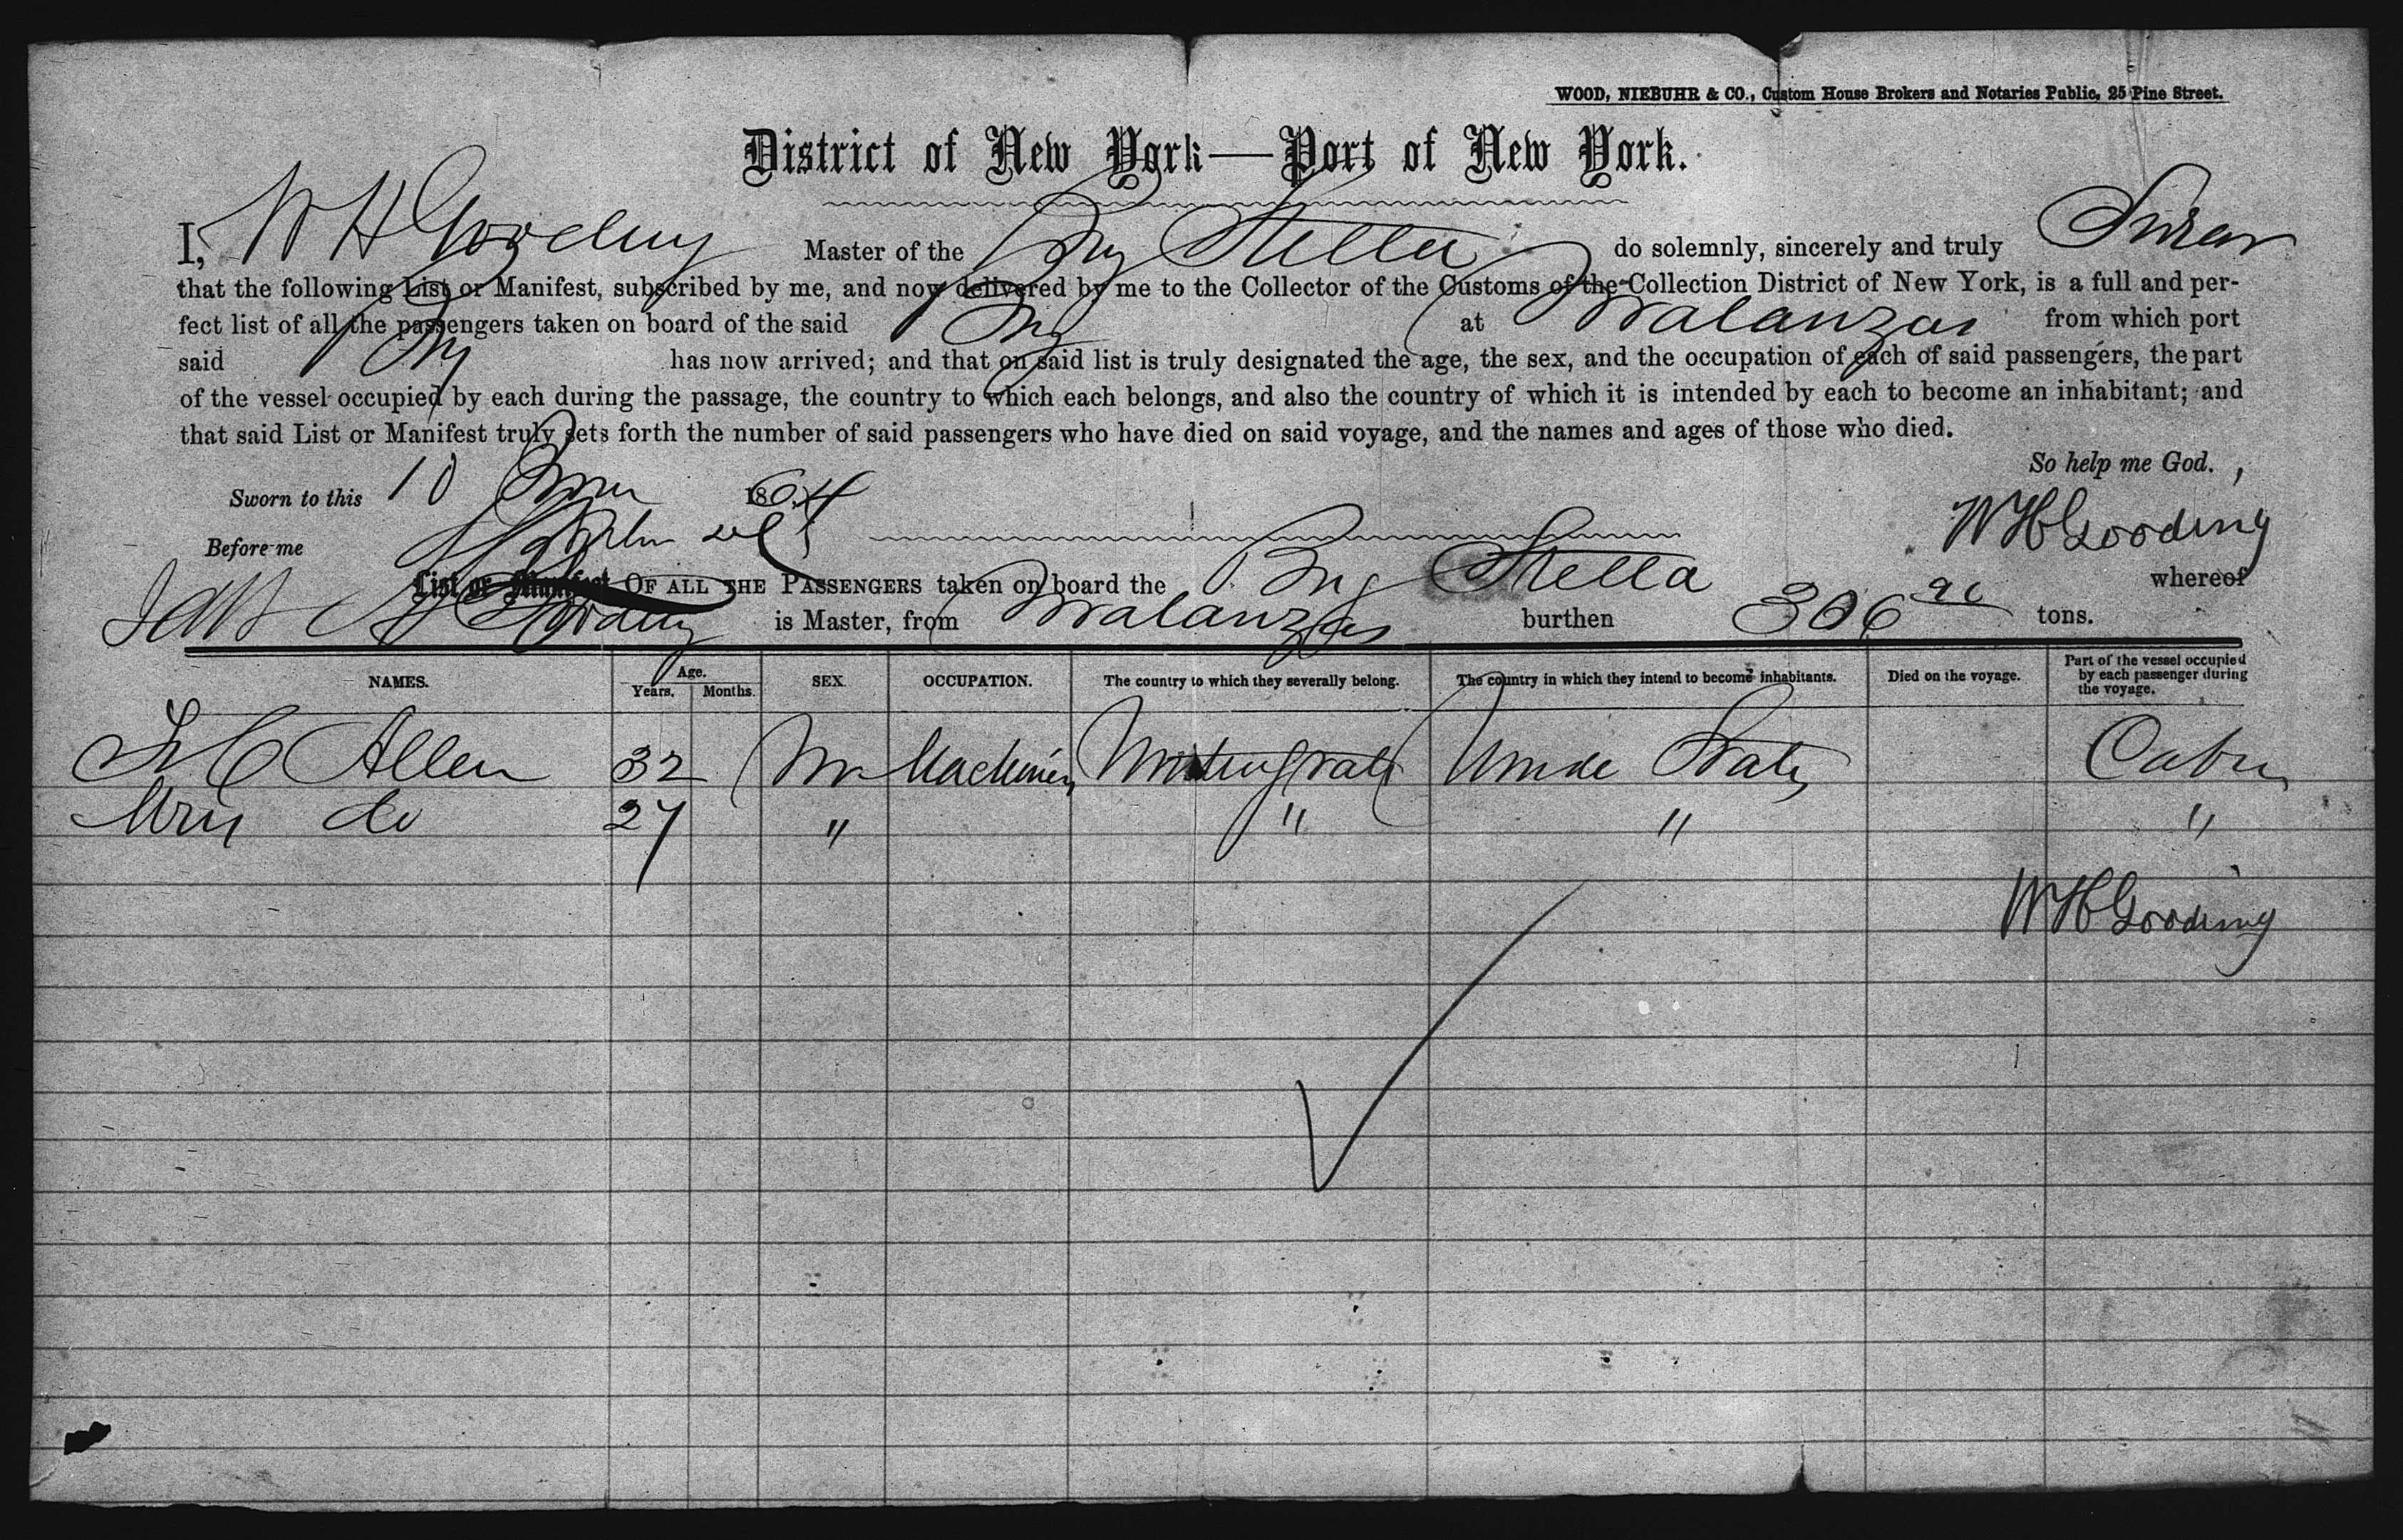 WOOD, NIEBUHR & CO., Custom House Brokers and Notaries Public, 25 Pine Street.
District of New York—Port of New York.
I, W H Gooding Master of the Brig Stella do solemnly, sincerely and truly Swear
that the following List or Manifest, subscribed by me, and now delivered by me to the Collector of the Customs of the Collection District of New York, is a full and per-
fect list of all the passengers taken on board of the said Brig at Matanzas from which port
said Brig has now arrived; and that on said list is truly designated the age, the sex, and the occupation of each of said passengers, the part
of the vessel occupied by each during the passage, the country to which each belongs, and also the country of which it is intended by each to become an inhabitant; and
that said List or Manifest truly sets forth the number of said passengers who have died on said voyage, and the names and ages of those who died.
So help me God.
Sworn to this 10 1864
Before me
W H Gooding
List or Manifest OF ALL THE PASSENGERS taken on board the Brig Stella whereof
Gooding is Master, from Matanzas burthen 306 tons.
NAMES. Age. Years. Months. SEX. OCCUPATION. The country to which they severally belong. The country in which they intend to become inhabitants. Died on the voyage. Part of the vessel occupied by each passenger during the voyage.
Allen 32 M United States Cabin
Mrs do 27 " " " "
W H Gooding